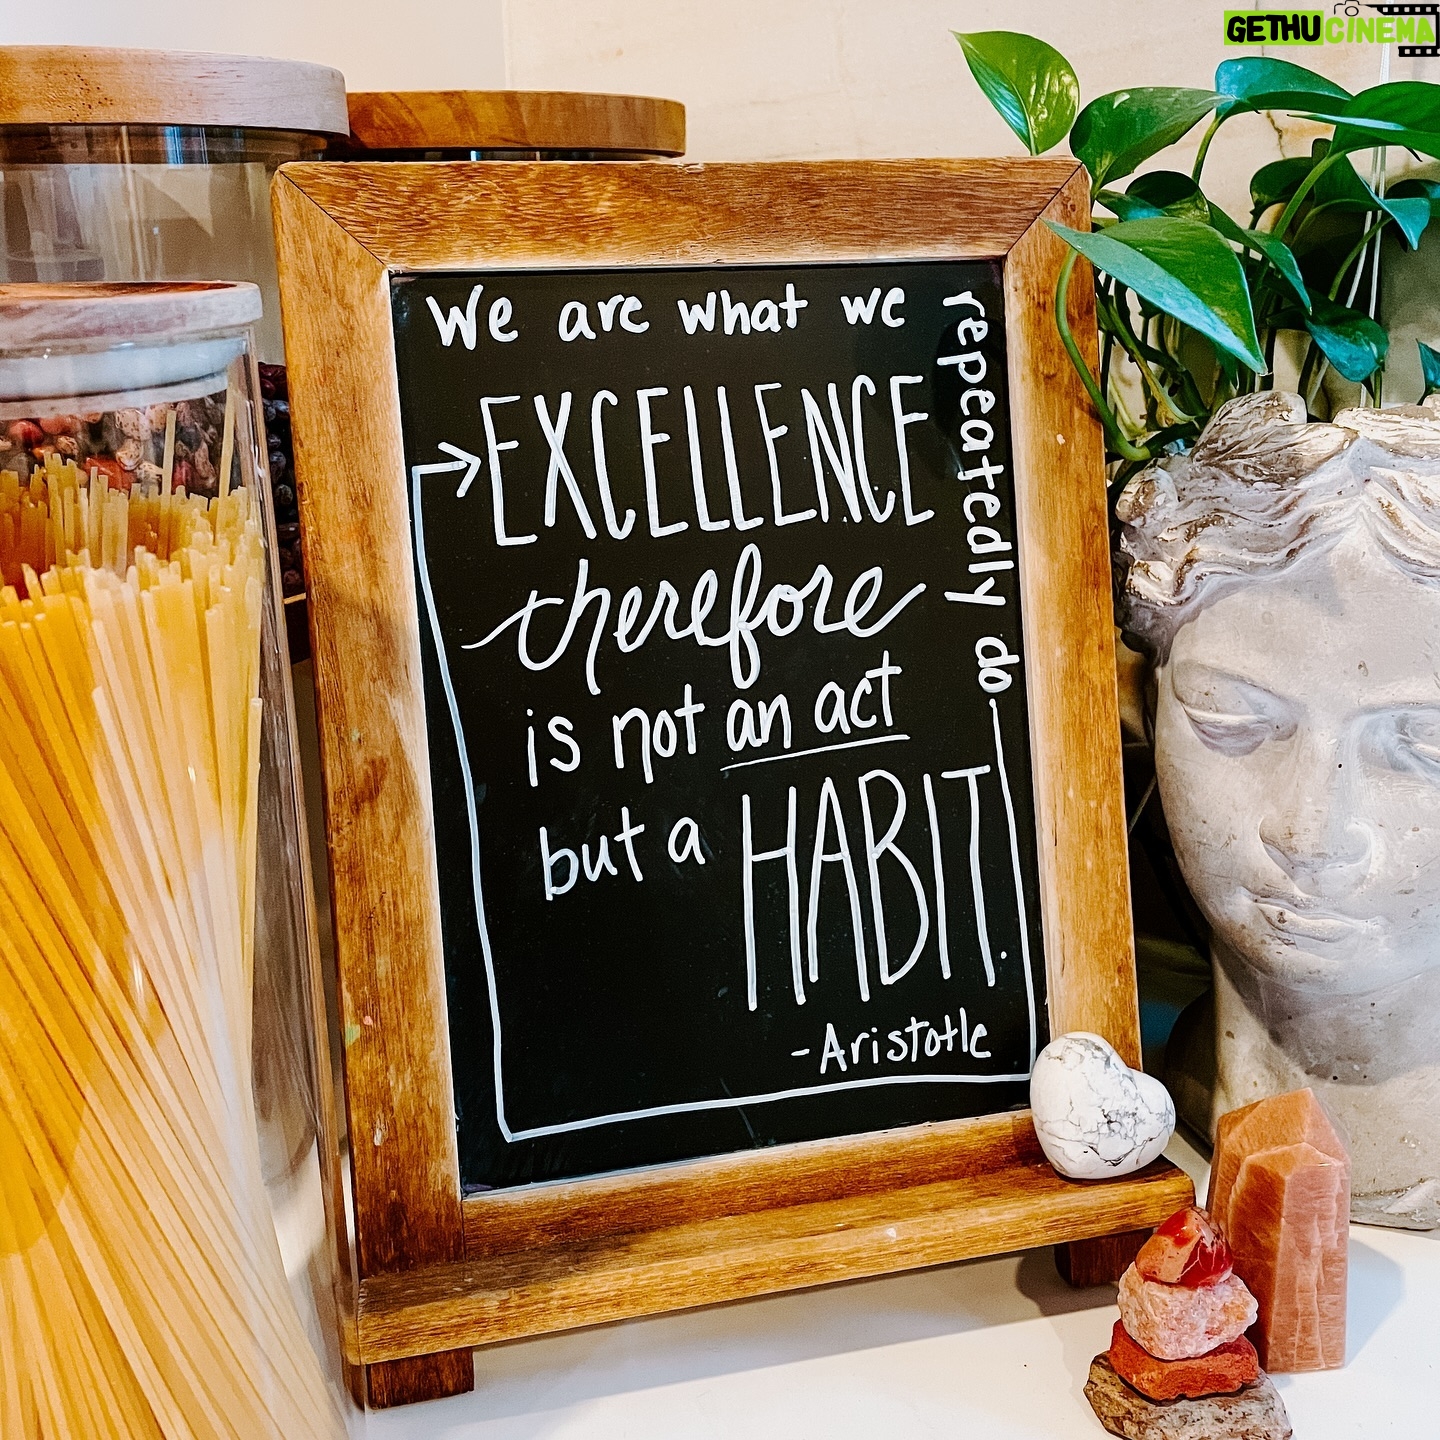 GETHUCINEMA
We are what we
repeatedly do
EXCELLENCE
therefore
is not an act
but a HABIT.
-Aristotle